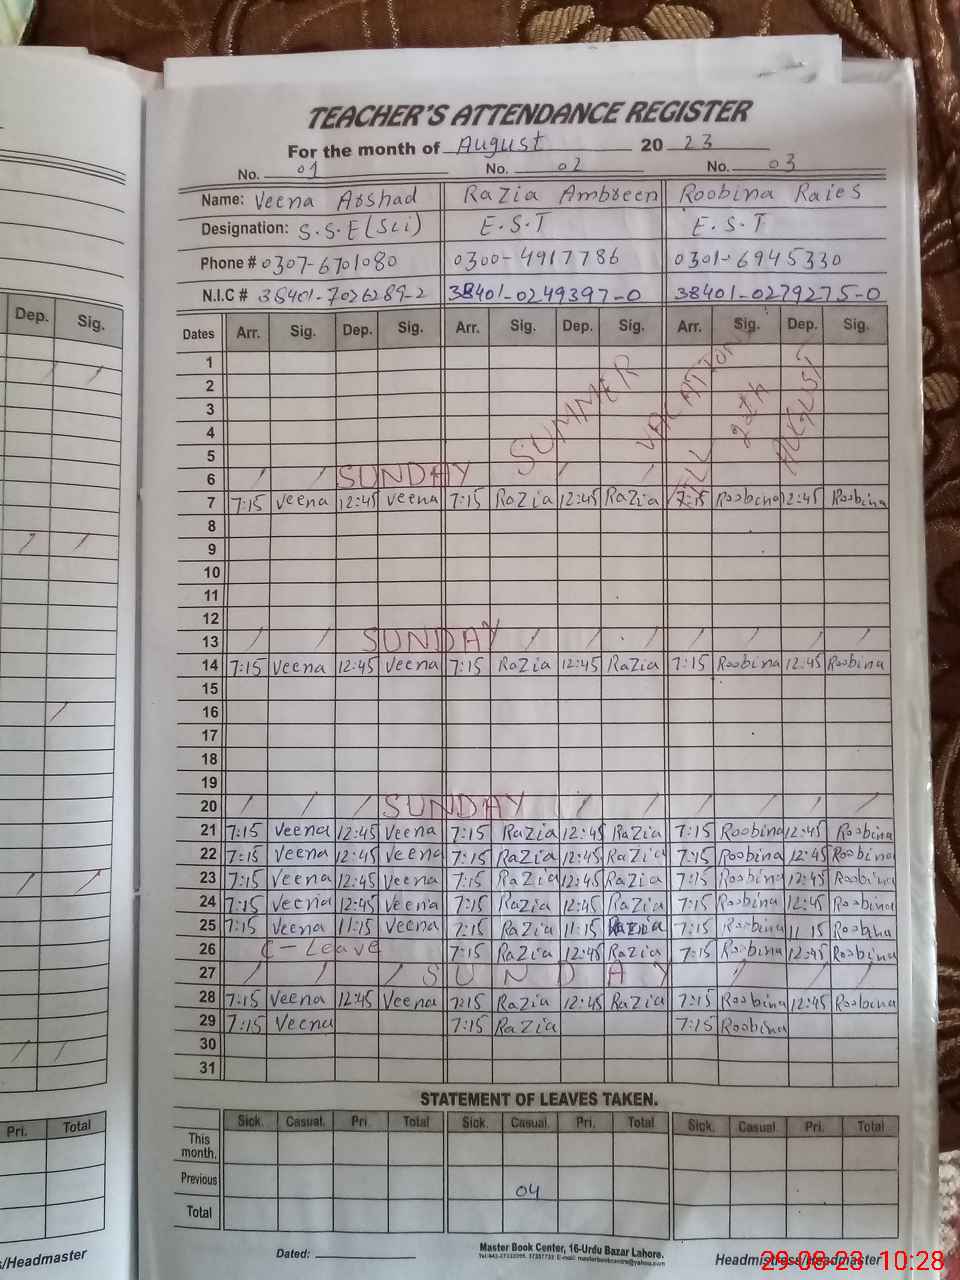 TEACHER'S ATTENDANCE REGISTER
For the month of August 20 23
No. 01 No. 02 No. 03
Name: Veena Arshad Razia Ambreen Roobina Raies
Designation: S.S.E (Sci) E.S.T E.S.T
Phone # 0307-6701080 0300-4917786 0301-6945330
N.I.C # 38401-7026289-2 38401-0249397-0 38401-0279275-0
Dep. Sig.
Dates Arr. Sig. Dep. Sig. Arr. Sig. Dep. Sig. Arr. Sig. Dep. Sig.
SUMMER VACATION TILL 20th AUGUST
1
2
3
4
5
6 SUNDAY
7 7:15 Veena 12:45 Veena 7:15 Razia 12:45 Razia 7:15 Roobina 12:45 Roobina
8
9
10
11
12
13 SUNDAY
14 7:15 Veena 12:45 Veena 7:15 Razia 12:45 Razia 7:15 Roobina 12:45 Roobina
15
16
17
18
19
20 SUNDAY
21 7:15 Veena 12:45 Veena 7:15 Razia 12:45 Razia 7:15 Roobina 12:45 Roobina
22 7:15 Veena 12:45 Veena 7:15 Razia 12:45 Razia 7:15 Roobina 12:45 Roobina
23 7:15 Veena 12:45 Veena 7:15 Razia 12:45 Razia 7:15 Roobina 12:45 Roobina
24 7:15 Veena 12:45 Veena 7:15 Razia 12:45 Razia 7:15 Roobina 12:45 Roobina
25 7:15 Veena 11:15 Veena 7:15 Razia 11:15 Razia 7:15 Roobina 11 15 Roobina
26 C-Leave 7:15 Razia 12:45 Razia 7:15 Roobina 12:45 Roobina
27 SUNDAY
28 7:15 Veena 12:45 Veena 7:15 Razia 12:45 Razia 7:15 Roobina 12:45 Roobina
29 7:15 Veena 7:15 Razia 7:15 Roobina
30
31
STATEMENT OF LEAVES TAKEN.
Pri. Total
Sick. Casual. Pri. Total Sick. Casual. Pri. Total Sick. Casual. Pri. Total
This month.
Previous 04
Total
Dated:
Master Book Center, 16-Urdu Bazar Lahore.
Headmistress/Headmaster
s/Headmaster
29-08-23 10:28